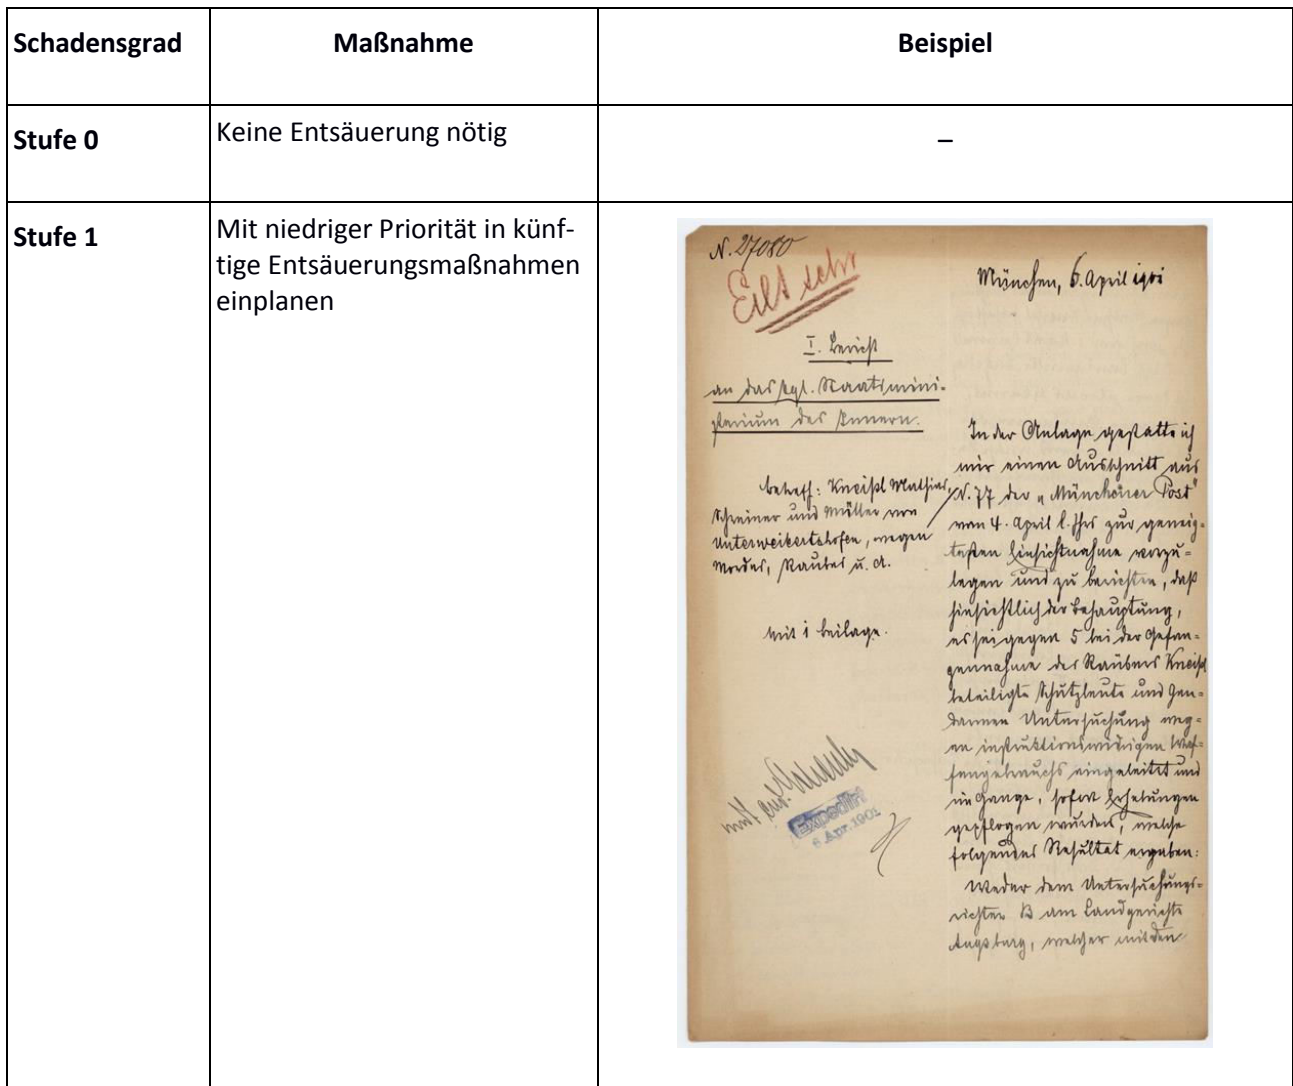 Schadensgrad
Maßnahme
Beispiel
Stufe 0
Keine Entsäuerung nötig
–
Stufe 1
Mit niedriger Priorität in künf-
tige Entsäuerungsmaßnahmen
einplanen
N. 27080
Eilt sehr
München, 6. April 1901
I. Bericht
an das kgl. Staatsmini-
sterium des Innern.
Betreff: Kneißl Mathias,
Schreiner und Müller von
Unterweikertshofen, wegen
Mordes, Raubes u. A.
Mit 1 Beilage.
In der Anlage gestatte ich
mir einen Ausschnitt aus
N. 77 der „Münchener Post"
vom 4. April l. Jhs zur geneig-
testen Einsichtnahme vorzu-
legen und zu berichten, daß
hinsichtlich der Behauptung,
es sei gegen 5 bei der Gefan-
gennahme des Räubers Kneißl
beteiligte Schutzleute und Gen-
darmen Untersuchung weg-
en instruktionswidrigen Waf-
fengebrauchs eingeleitet und
im Gange, sofort Erhebungen
gepflogen wurden, welche
folgendes Resultat ergaben:
Weder dem Untersuchungs-
richter B am Landgerichte
Augsburg, welcher mit den
Expedirt
6 Apr. 1901